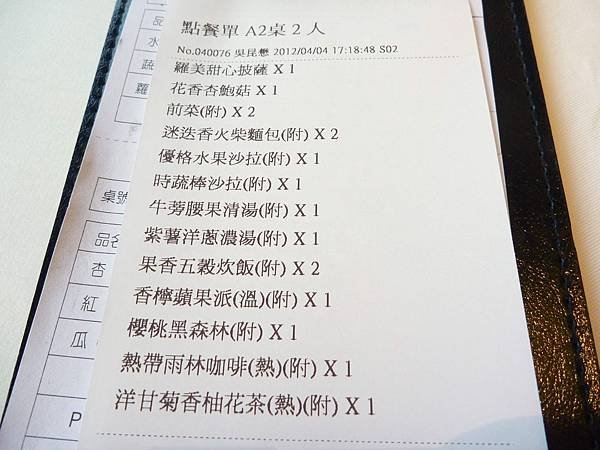 點餐單 A2桌 2 人
No.040076 吳昆懋 2012/04/04 17:18:48 S02
羅美甜心披薩 X 1
花香杏鮑菇 X 1
前菜(附) X 2
迷迭香火柴麵包(附) X 2
優格水果沙拉(附) X 1
時蔬棒沙拉(附) X 1
牛蒡腰果清湯(附) X 1
紫薯洋蔥濃湯(附) X 1
果香五榖炊飯(附) X 2
香檸蘋果派(溫)(附) X 1
櫻桃黑森林(附) X 1
熱帶雨林咖啡(熱)(附) X 1
洋甘菊香柚花茶(熱)(附) X 1
品
水
蔬
羅
桌號
品名
杏
紅
瓜
P